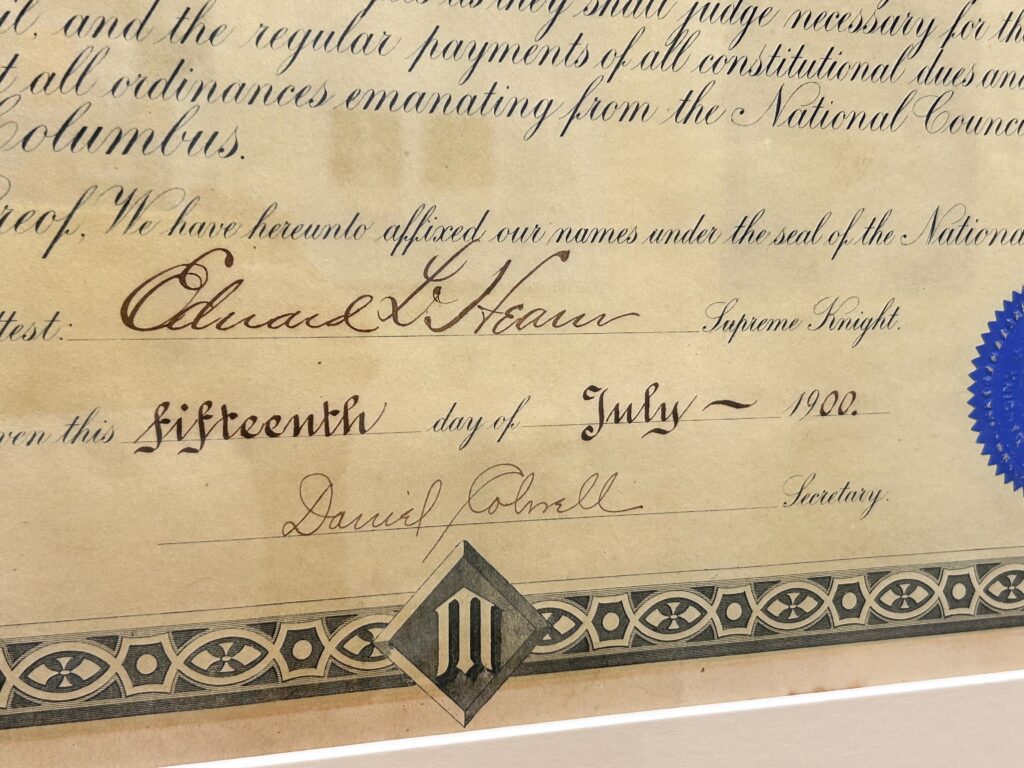 as they shall judge necessary for th
il, and the regular payments of all constitutional dues and
t all ordinances emanating from the National Counc
Columbus.
reof, We have hereunto affixed our names under the seal of the Nationa
ttest: Edward L. Hearn Supreme Knight.
ven this fifteenth day of July 1900.
Daniel Colwell Secretary.
M